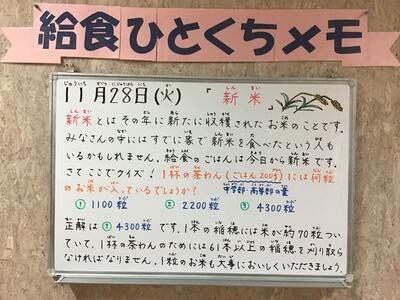 給食ひとくちメモ
11月28日(火) 「新米」
新米とはその年に新たに収穫されたお米のことです。
みなさんの中にはすでに家で新米を食べたという人も
いるかもしれません。給食のごはんは今日から新米です。
さてここでクイズ！1杯の茶わん(ごはん200g)には何粒
のお米が入っているでしょうか？ 中学部・高等部の量
① 1100粒 ② 2200粒 ③ 4300粒
正解は③4300粒です。1本の稲穂には米が約70粒つい
ていて、1杯の茶わんのためには61本以上の稲穂を刈り取ら
なければなりません。1粒のお米も大事においしくいただきましょう。